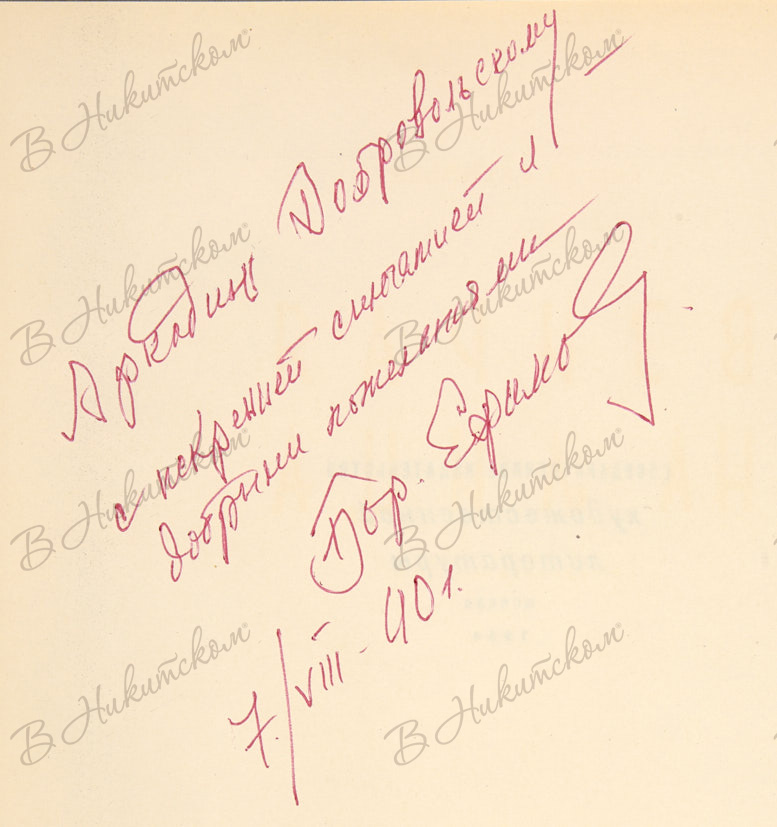 Аркадию Добровольскому
с искренней симпатией и
добрыми пожеланиями
Бор. Ефимов.
7/VIII-40 г.
В Никитском
В Никитском
В Никитском
В Никитском
В Никитском
В Никитском
В Никитском
В Никитском